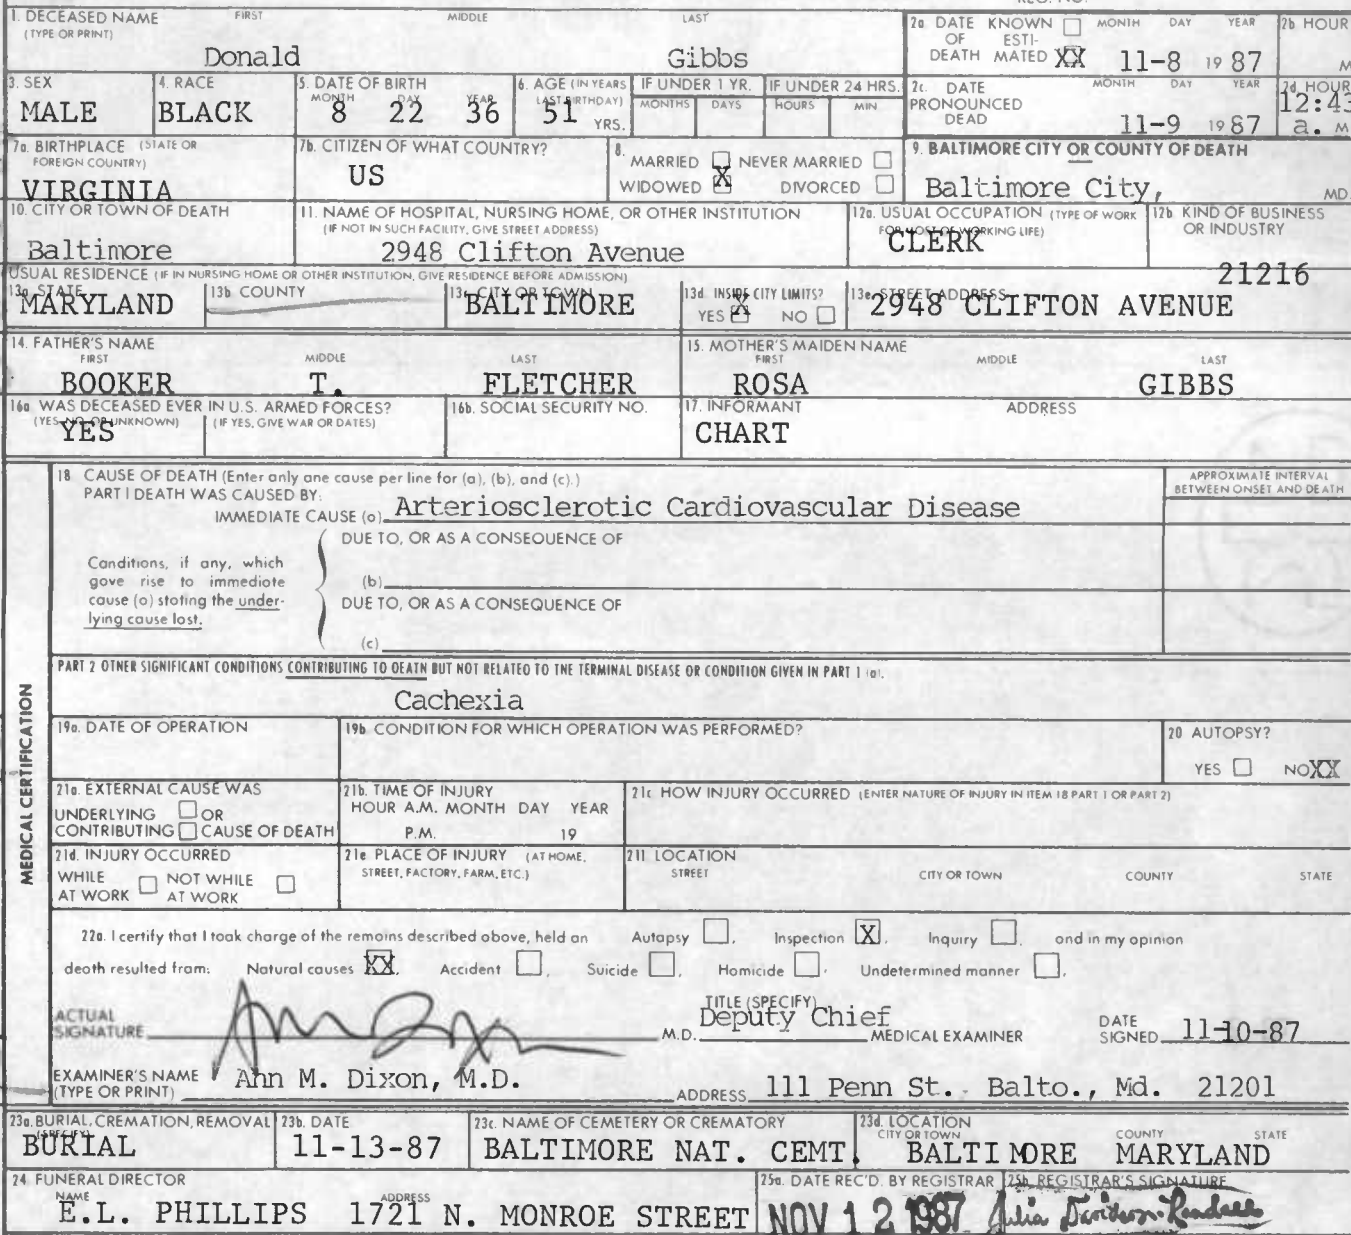 1. DECEASED NAME FIRST MIDDLE LAST
(TYPE OR PRINT)
Donald Gibbs
2a. DATE KNOWN ☐ MONTH DAY YEAR 2b HOUR
OF ESTI-
DEATH MATED XX 11-8 19 87 M
3. SEX 4. RACE 5. DATE OF BIRTH 6. AGE (IN YEARS IF UNDER 1 YR. IF UNDER 24 HRS.
MONTH DAY YEAR LAST BIRTHDAY) MONTHS DAYS HOURS MIN
MALE BLACK 8 22 36 51 YRS.
2c. DATE MONTH DAY YEAR 2d. HOUR
PRONOUNCED 12:43
DEAD 11-9 19 87 a. M
7a. BIRTHPLACE (STATE OR
FOREIGN COUNTRY)
VIRGINIA
7b. CITIZEN OF WHAT COUNTRY?
US
8. MARRIED ☐ NEVER MARRIED ☐
WIDOWED X DIVORCED ☐
9. BALTIMORE CITY OR COUNTY OF DEATH
Baltimore City, MD.
10. CITY OR TOWN OF DEATH
Baltimore
11. NAME OF HOSPITAL, NURSING HOME, OR OTHER INSTITUTION
(IF NOT IN SUCH FACILITY, GIVE STREET ADDRESS)
2948 Clifton Avenue
12a. USUAL OCCUPATION (TYPE OF WORK
FOR MOST OF WORKING LIFE)
CLERK
12b. KIND OF BUSINESS
OR INDUSTRY
USUAL RESIDENCE (IF IN NURSING HOME OR OTHER INSTITUTION, GIVE RESIDENCE BEFORE ADMISSION)
21216
13a. STATE 13b. COUNTY 13c. CITY OR TOWN 13d. INSIDE CITY LIMITS? 13e. STREET ADDRESS
MARYLAND BALTIMORE YES X NO ☐ 2948 CLIFTON AVENUE
14. FATHER'S NAME
FIRST MIDDLE LAST
BOOKER T. FLETCHER
15. MOTHER'S MAIDEN NAME
FIRST MIDDLE LAST
ROSA GIBBS
16a. WAS DECEASED EVER IN U.S. ARMED FORCES?
(YES, NO, OR UNKNOWN) (IF YES, GIVE WAR OR DATES)
YES
16b. SOCIAL SECURITY NO.
17. INFORMANT ADDRESS
CHART
MEDICAL CERTIFICATION
18 CAUSE OF DEATH (Enter only one cause per line for (a), (b), and (c).)
PART I DEATH WAS CAUSED BY:
IMMEDIATE CAUSE (a) Arteriosclerotic Cardiovascular Disease
APPROXIMATE INTERVAL
BETWEEN ONSET AND DEATH
DUE TO, OR AS A CONSEQUENCE OF
Conditions, if any, which
gave rise to immediate
cause (a) stating the under-
lying cause last.
(b)
DUE TO, OR AS A CONSEQUENCE OF
(c)
PART 2 OTHER SIGNIFICANT CONDITIONS CONTRIBUTING TO DEATH BUT NOT RELATED TO THE TERMINAL DISEASE OR CONDITION GIVEN IN PART 1 (a).
Cachexia
19a. DATE OF OPERATION
19b. CONDITION FOR WHICH OPERATION WAS PERFORMED?
20 AUTOPSY?
YES ☐ NO XX
21a. EXTERNAL CAUSE WAS
UNDERLYING ☐ OR
CONTRIBUTING ☐ CAUSE OF DEATH
21b. TIME OF INJURY
HOUR A.M. MONTH DAY YEAR
P.M. 19
21c HOW INJURY OCCURRED (ENTER NATURE OF INJURY IN ITEM 18 PART 1 OR PART 2)
21d. INJURY OCCURRED
WHILE ☐ NOT WHILE ☐
AT WORK AT WORK
21e PLACE OF INJURY (AT HOME,
STREET, FACTORY, FARM, ETC.)
21f. LOCATION
STREET CITY OR TOWN COUNTY STATE
22a. I certify that I took charge of the remains described above, held an Autopsy ☐, Inspection X, Inquiry ☐, and in my opinion
death resulted from: Natural causes XX, Accident ☐, Suicide ☐, Homicide ☐, Undetermined manner ☐.
ACTUAL
SIGNATURE M.D.
TITLE (SPECIFY)
Deputy Chief MEDICAL EXAMINER
DATE
SIGNED 11-10-87
EXAMINER'S NAME
(TYPE OR PRINT) Ann M. Dixon, M.D.
ADDRESS 111 Penn St. Balto., Md. 21201
23a. BURIAL, CREMATION, REMOVAL
(SPECIFY)
BURIAL
23b. DATE
11-13-87
23c. NAME OF CEMETERY OR CREMATORY
BALTIMORE NAT. CEMT.
23d. LOCATION
CITY OR TOWN COUNTY STATE
BALTIMORE MARYLAND
24. FUNERAL DIRECTOR
NAME ADDRESS
E.L. PHILLIPS 1721 N. MONROE STREET
25a. DATE REC'D. BY REGISTRAR
NOV 12 1987
25b. REGISTRAR'S SIGNATURE
Julia Davidson-Randall